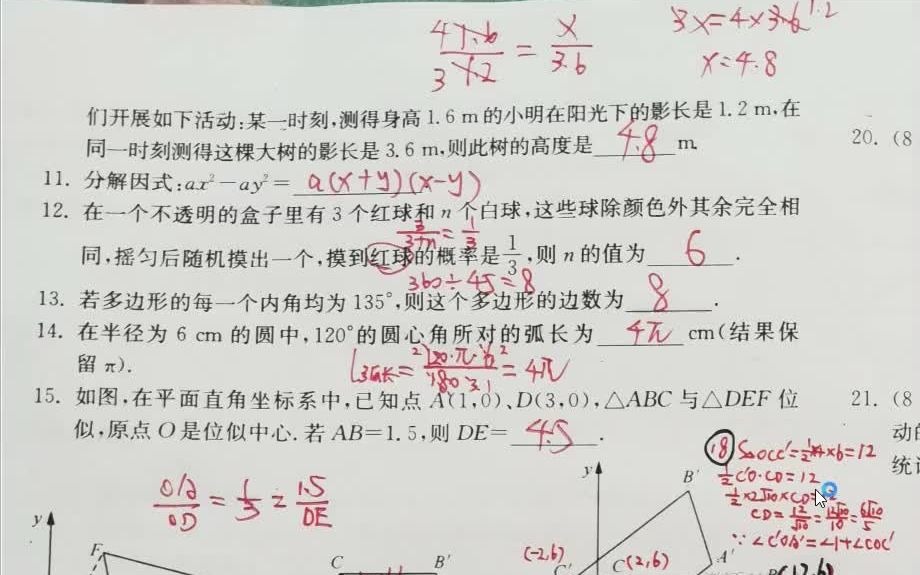 4 1.6 / 3 1.2 = x / 3.6
3x=4×3.6 1.2
x=4.8
们开展如下活动:某一时刻,测得身高1.6 m的小明在阳光下的影长是1.2 m,在
同一时刻测得这棵大树的影长是3.6 m,则此树的高度是 4.8 m.
20. (8
11. 分解因式:ax²-ay²= a(x+y)(x-y)
12. 在一个不透明的盒子里有3个红球和n个白球,这些球除颜色外其余完全相
3/(3+n)=1/3
同,摇匀后随机摸出一个,摸到红球的概率是1/3,则n的值为 6 .
360÷45=8
13. 若多边形的每一个内角均为135°,则这个多边形的边数为 8 .
14. 在半径为6 cm的圆中,120°的圆心角所对的弧长为 4π cm(结果保
留π).
l弧长=120·π·6/180=4π
15. 如图,在平面直角坐标系中,已知点A(1,0)、D(3,0),△ABC与△DEF位
21. (8
似,原点O是位似中心.若AB=1.5,则DE= 4.5 .
动的
统计
OA/OD=1/3=1.5/DE
18 S△OCC'=1/2×4×6=12
1/2C'O·CD=12
1/2×2√10×CD=12
CD=12/√10=12√10/10=6√10/5
∵∠C'OA'=∠1+∠COC'
y
F
C
B'
y
B'
(-2,6)
C'
C(2,6)
A'